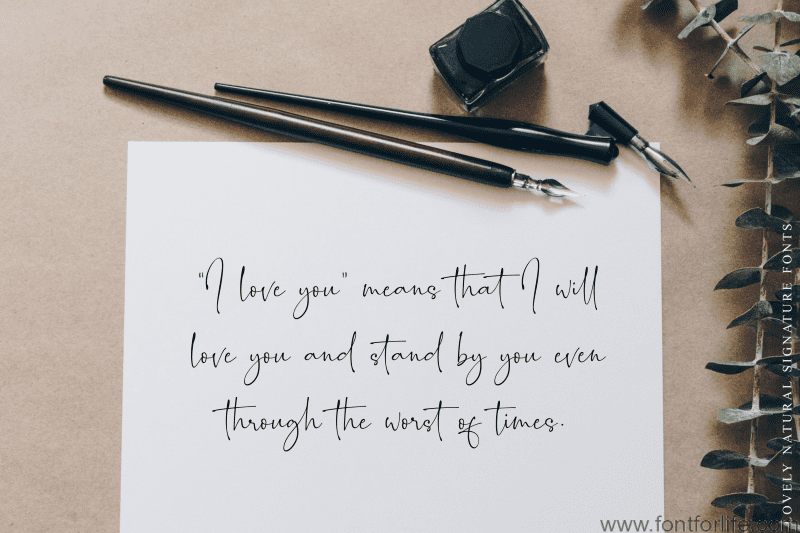 “I love you” means that I will
love you and stand by you even
through the worst of times.
LOVELY NATURAL SIGNATURE FONTS
www.fontforlife.com